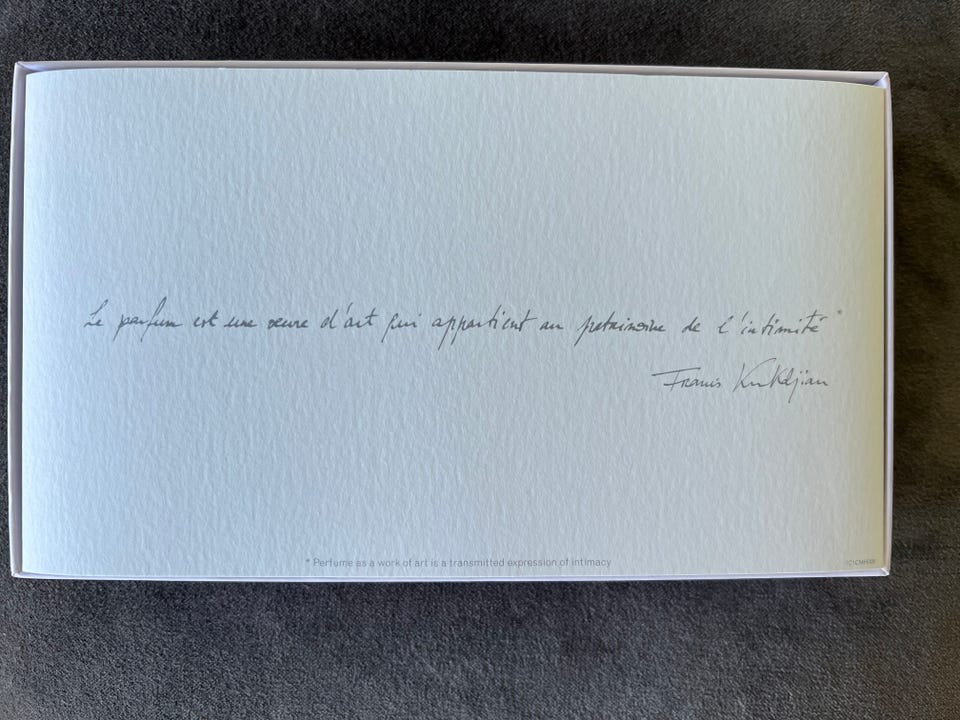 Le parfum est une œuvre d'art qui appartient au patrimoine de l'intimité *
Francis Kurkdjian
* Perfume as a work of art is a transmitted expression of intimacy